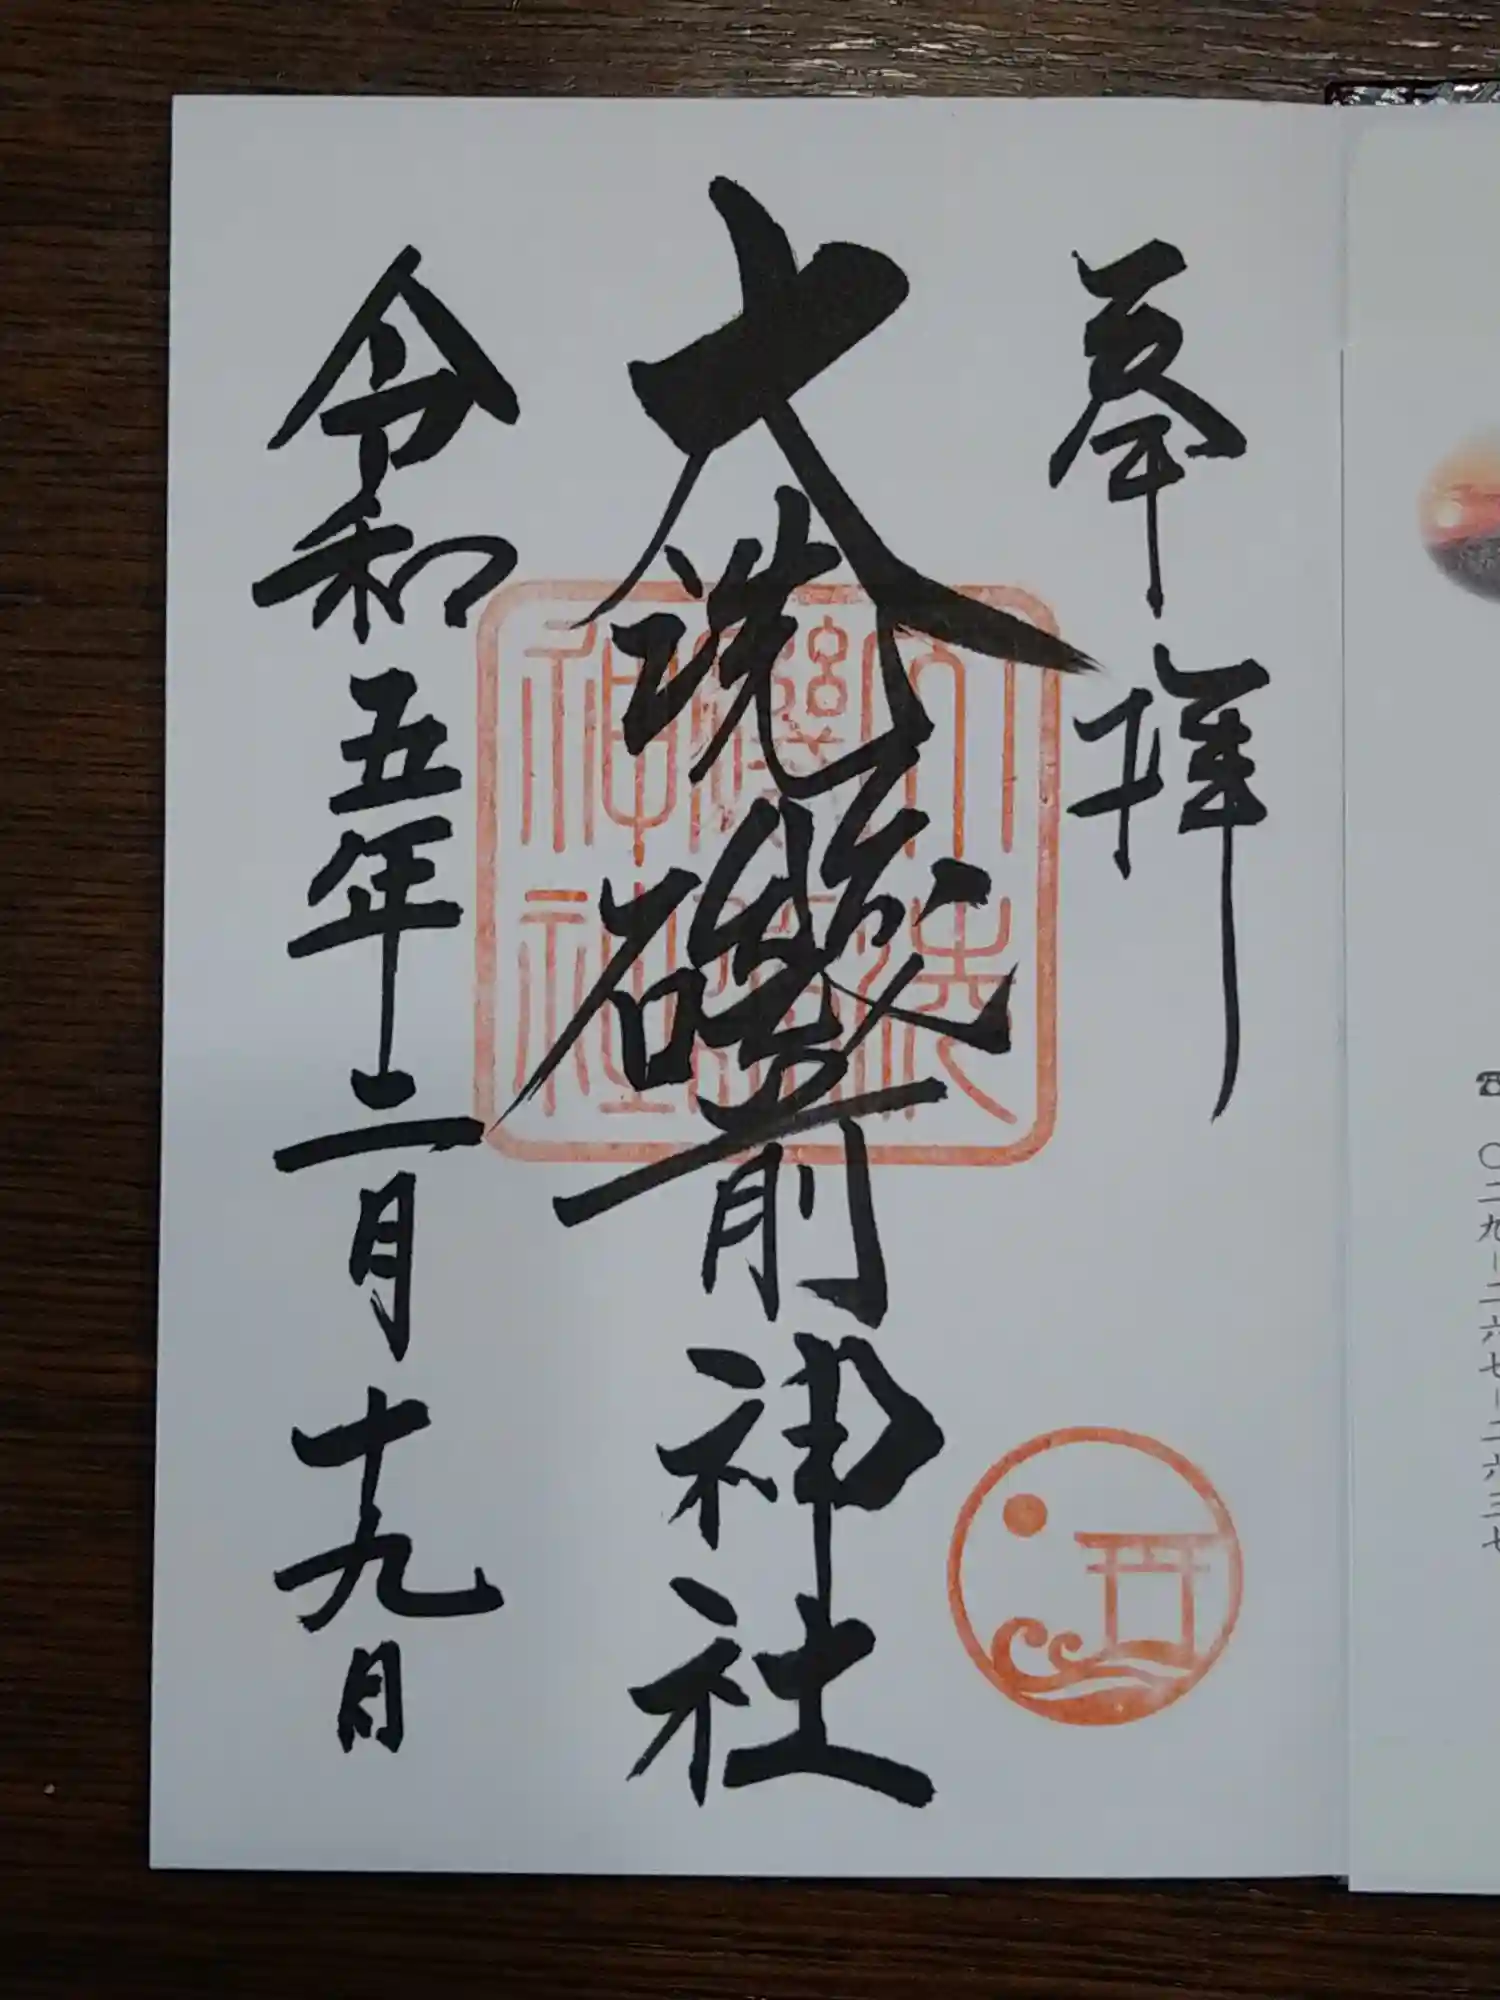 奉拝
大洗磯前神社
令和五年二月十九日
大洗
磯前
神社
☎
〇二九-二六七-二六三七